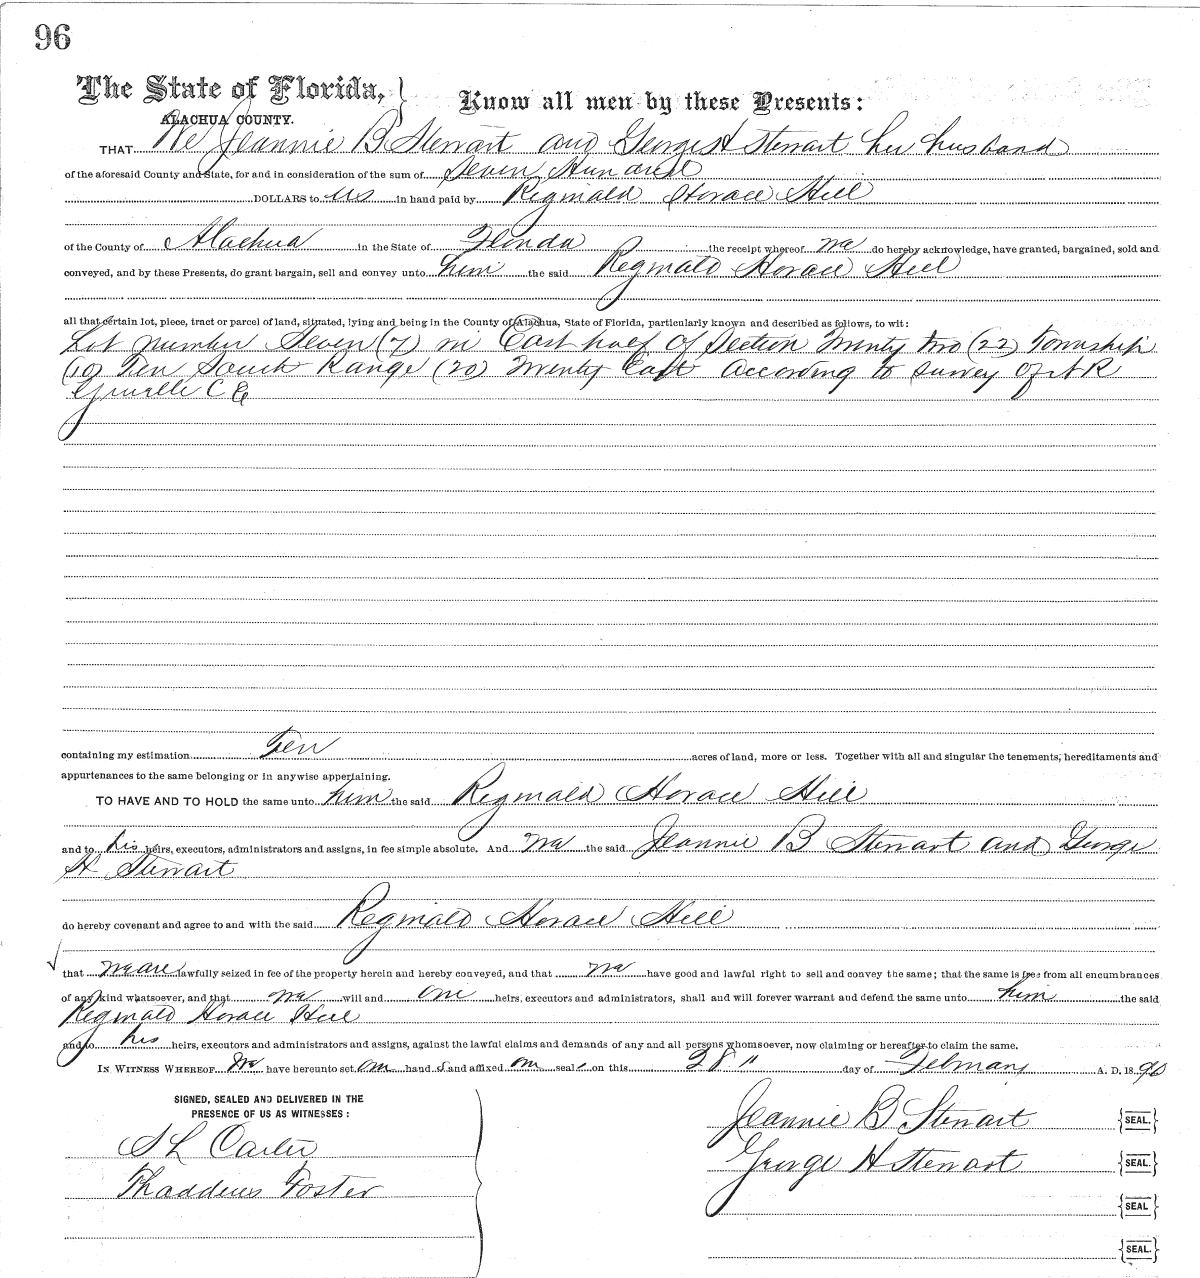 96
The State of Florida, } Know all men by these Presents:
ALACHUA COUNTY.
THAT We Jeannie B Stewart and George H Stewart her husband
of the aforesaid County and State, for and in consideration of the sum of Seven Hundred
DOLLARS to us in hand paid by Reginald Horace Hill
of the County of Alachua in the State of Florida the receipt whereof we do hereby acknowledge, have granted, bargained, sold and
conveyed, and by these Presents, do grant bargain, sell and convey unto him the said Reginald Horace Hill
all that certain lot, piece, tract or parcel of land, situated, lying and being in the County of Alachua, State of Florida, particularly known and described as follows, to wit:
Lot number Seven (7) in East half of Section Twenty two (22) Township
(10) Ten South Range (20) Twenty East According to survey of
C E
containing my estimation Ten acres of land, more or less. Together with all and singular the tenements, hereditaments and
appurtenances to the same belonging or in anywise appertaining.
TO HAVE AND TO HOLD the same unto him the said Reginald Horace Hill
and to his heirs, executors, administrators and assigns, in fee simple absolute. And we the said Jeannie B Stewart and George
H Stewart
do hereby covenant and agree to and with the said Reginald Horace Hill
that we are lawfully seized in fee of the property herein and hereby conveyed, and that we have good and lawful right to sell and convey the same; that the same is free from all encumbrances
of any kind whatsoever, and that we will and our heirs, executors and administrators, shall and will forever warrant and defend the same unto him the said
Reginald Horace Hill
and to his heirs, executors and administrators and assigns, against the lawful claims and demands of any and all persons whomsoever, now claiming or hereafter to claim the same.
IN WITNESS WHEREOF We have hereunto set our hand s and affixed our seal s on this 28" day of February A. D. 18 90
SIGNED, SEALED AND DELIVERED IN THE
PRESENCE OF US AS WITNESSES:
S L Carter
Thaddeus Foster
Jeannie B Stewart {SEAL.}
George H Stewart {SEAL.}
{SEAL}
{SEAL.}